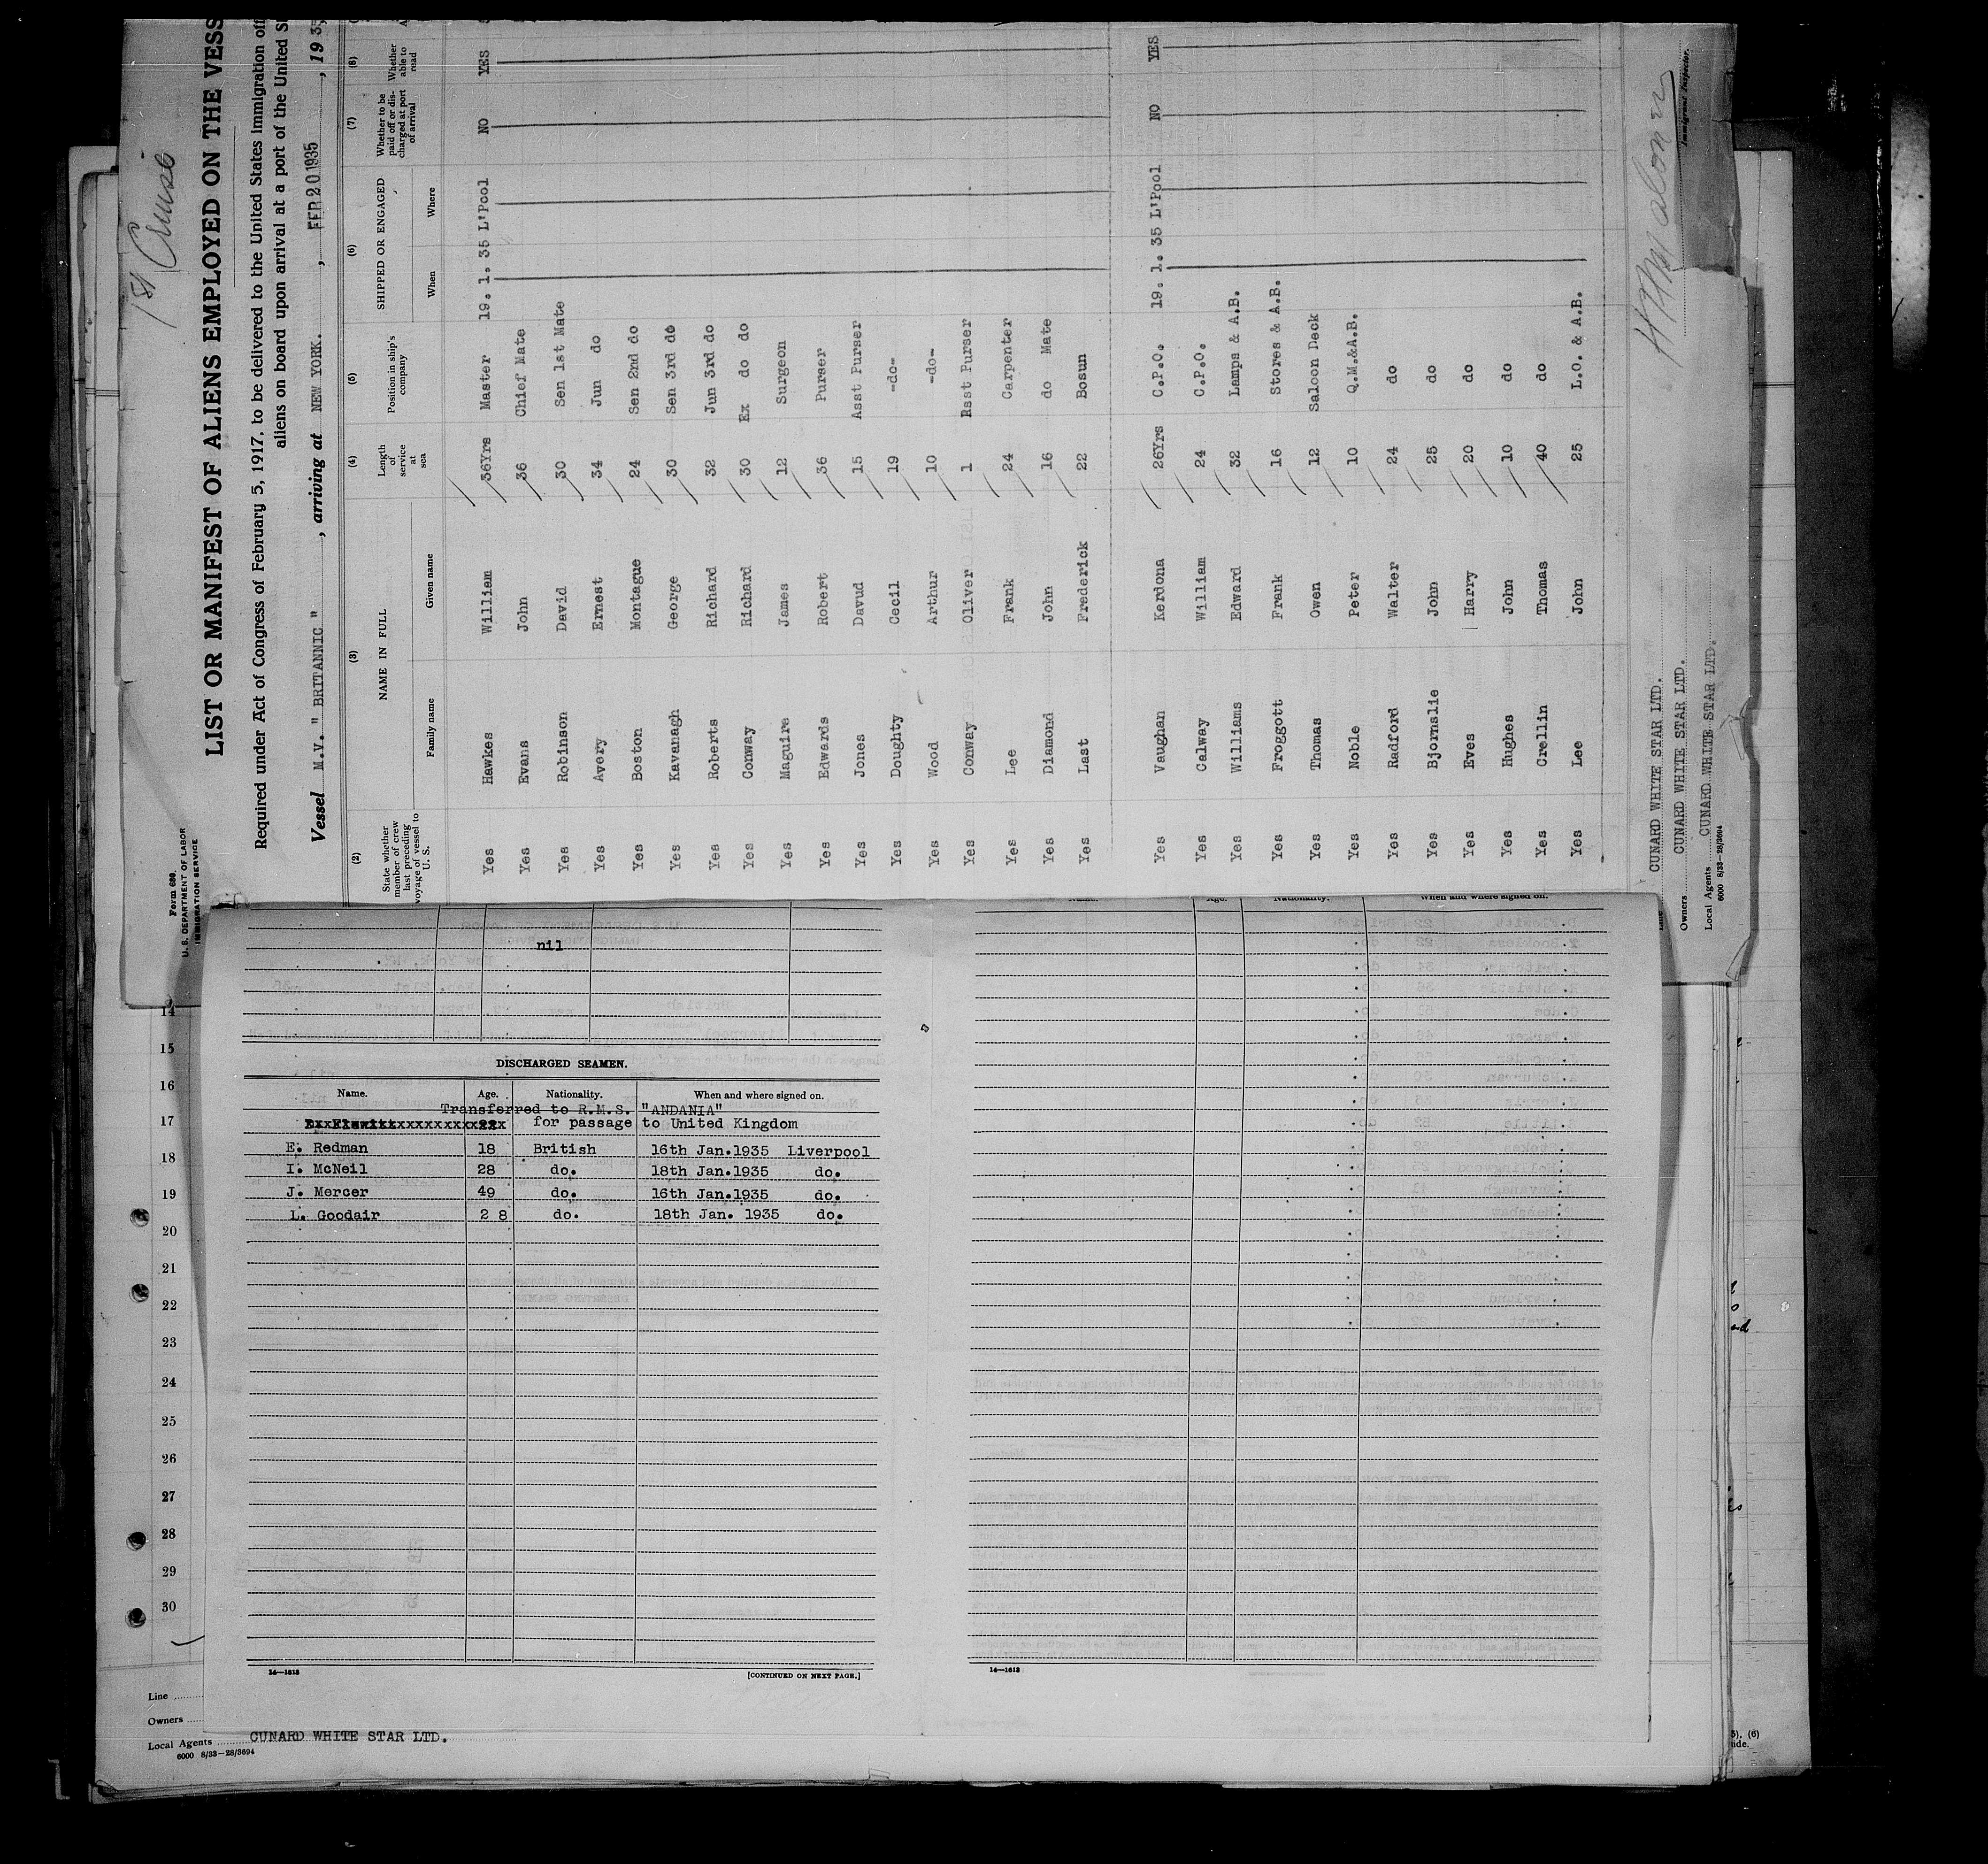 1st Cruise
Form 689.
U. S. DEPARTMENT OF LABOR
IMMIGRATION SERVICE
LIST OR MANIFEST OF ALIENS EMPLOYED ON THE VESS
Required under Act of Congress of February 5, 1917, to be delivered to the United States immigration off
aliens on board upon arrival at a port of the United St
Vessel M.V. " BRITANNIC ", arriving at NEW YORK. , FEB 20 1935, 193
(2) (3) (4) (5) (6) (7) (8)
State whether member of crew last preceding voyage of vessel to U. S. NAME IN FULL Length of service at sea Position in ship's company SHIPPED OR ENGAGED Whether to be paid off or discharged at port of arrival Whether able to read
Family name Given name When Where
Yes Hawkes William 36Yrs Master 19. 1. 35 L'Pool NO YES
Yes Evans John 36 Chief Mate
Yes Robinson David 30 Sen 1st Mate
Yes Avery Ernest 34 Jun do
Yes Boston Montague 24 Sen 2nd do
Yes Kavanagh George 30 Sen 3rd do
Yes Roberts Richard 32 Jun 3rd do
Yes Conway Richard 30 Ex do do
Yes Maguire James 12 Surgeon
Yes Edwards Robert 36 Purser
Yes Jones Davud 15 Asst Purser
Yes Doughty Cecil 19 -do-
Yes Wood Arthur 10 -do-
Yes Conway Oliver 1 Asst Purser
Yes Lee Frank 24 Carpenter
Yes Diamond John 16 do Mate
Yes Last Frederick 22 Bosun
Yes Vaughan Kerdona 26Yrs C.P.O. 19. 1. 35 L'Pool NO YES
Yes Calway William 24 C.P.O.
Yes Williams Edward 32 Lamps & A.B.
Yes Froggott Frank 16 Stores & A.B.
Yes Thomas Owen 12 Saloon Deck
Yes Noble Peter 10 Q.M.&A.B.
Yes Radford Walter 24 do
Yes Bjornslie John 25 do
Yes Eves Harry 20 do
Yes Hughes John 10 do
Yes Crellin Thomas 40 do
Yes Lee John 25 L.O. & A.B.
Line CUNARD WHITE STAR LTD.
Owners CUNARD WHITE STAR LTD.
Local Agents CUNARD WHITE STAR LTD.
6000 8/33-28/3694
Immigrant Inspector.
nil
DISCHARGED SEAMEN.
Name. Age. Nationality. When and where signed on.
Transferred to R.M.S. "ANDANIA"
22 for passage to United Kingdom
E. Redman 18 British 16th Jan.1935 Liverpool
I. McNeil 28 do. 18th Jan.1935 do.
J. Mercer 49 do. 16th Jan.1935 do.
L. Goodair 2 8 do. 18th Jan. 1935 do.
14—1613
[CONTINUED ON NEXT PAGE.]
Name. Age. Nationality. When and where signed on.
14—1613
14
15
16
17
18
19
20
21
22
23
24
25
26
27
28
29
30
Line
Owners
Local Agents CUNARD WHITE STAR LTD.
6000 8/33-28/3694
(6)